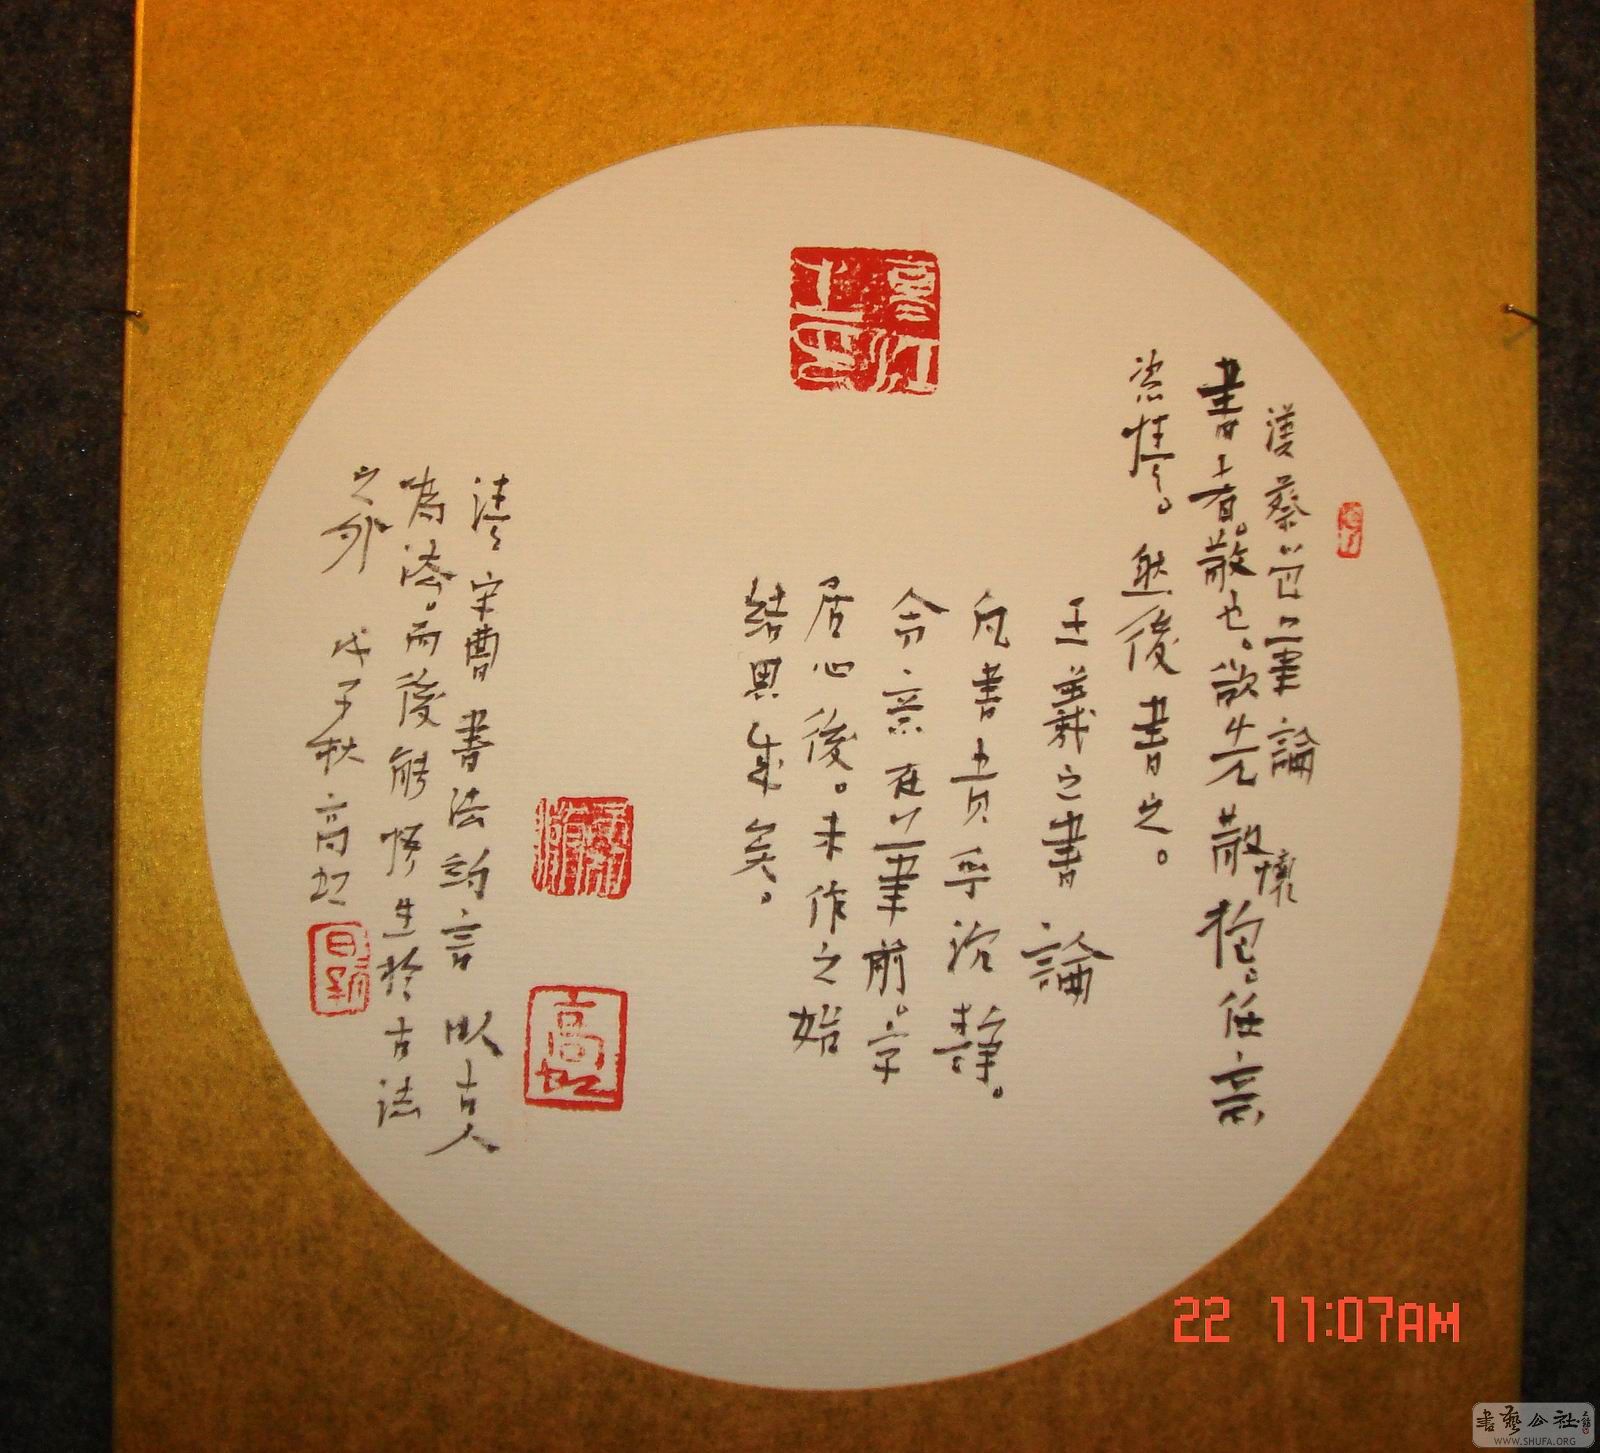 漢 蔡邕 筆論
書者。散也。欲先散懷抱。任意
恣情。然後書之。
王羲之書論
凡書貴乎沈静。
令意在筆前。字
居心後。未作之始
結思成矣。
清 宋曹 書法約言 以古人
為法。而後能悟生於古法
之外 戊子秋 高虹
高虹
22 11:07AM
書藝公社
WWW.SHUFA.ORG